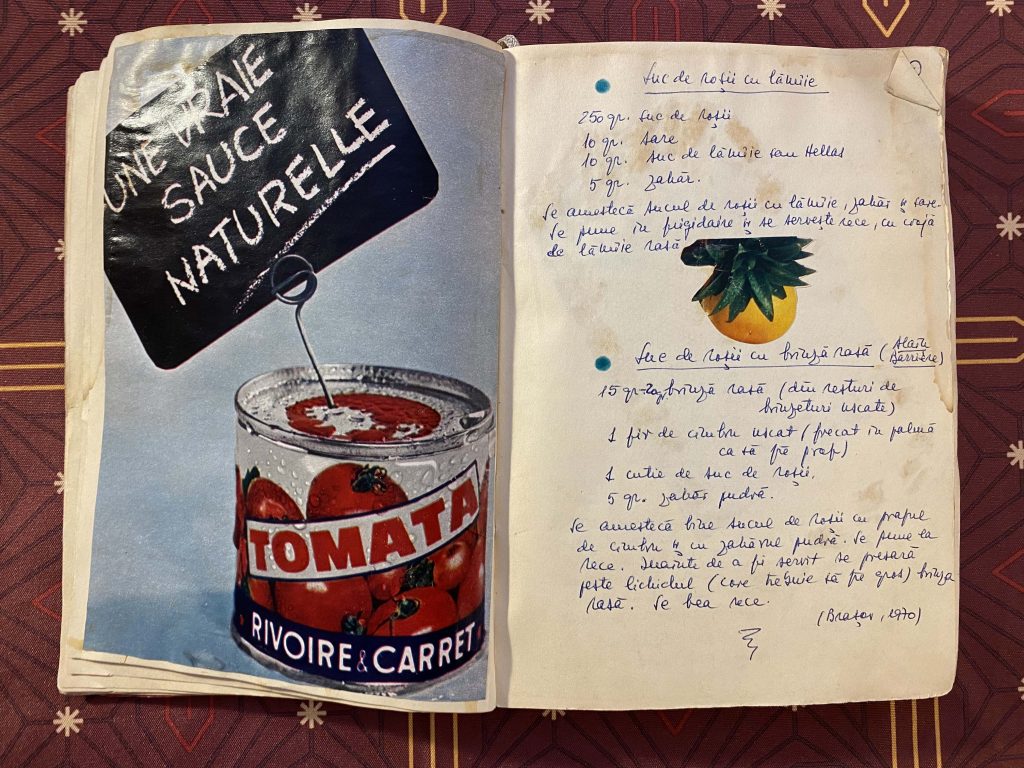 UNE VRAIE
SAUCE
NATURELLE
TOMATA
RIVOIRE & CARRET
Suc de roșii cu lămîie
250 gr. suc de roșii
10 gr. sare
10 gr. suc de lămîie sau Hellas
5 gr. zahăr.
Se amestecă sucul de roșii cu lămîie, zahăr și sare.
Se pune în frigidaire și se servește rece, cu coajă
de lămîie rasă
Suc de roșii cu brînză rasă (Alain
Barrière)
15 gr-20g brînză rasă (din resturi de
brînzeturi uscate)
1 fir de cimbru uscat (frecat în palmă
ca să fie praf)
1 cutie de suc de roșii.
5 gr. zahăr pudră.
Se amestecă bine sucul de roșii cu praful
de cimbru și cu zahărul pudră. Se pune la
rece. Înainte de a fi servit se presară
peste lichidul (care trebuie să fie gros) brînza
rasă. Se bea rece.
(Brașov, 1970)